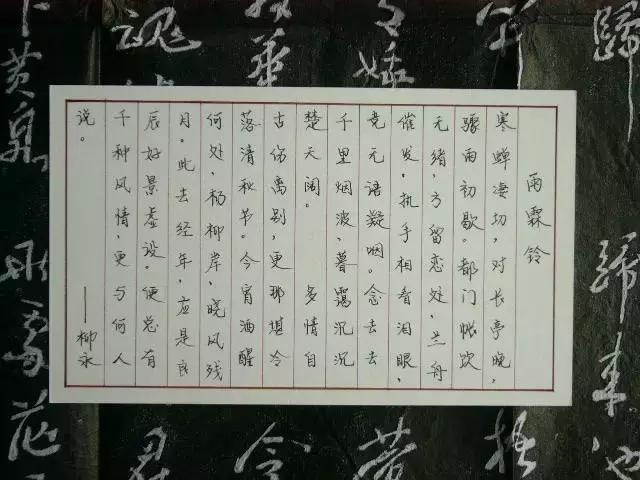 雨霖铃
寒蝉凄切,对长亭晚,
骤雨初歇。都门帐饮
无绪,方留恋处,兰舟
催发。执手相看泪眼,
竟无语凝咽。念去去
千里烟波,暮霭沉沉
楚天阔。 多情自
古伤离别,更那堪冷
落清秋节。今宵酒醒
何处,杨柳岸,晓风残
月。此去经年,应是良
辰好景虚设。便总有
千种风情,更与何人
说。 ——柳永
歸
魂
黄泉